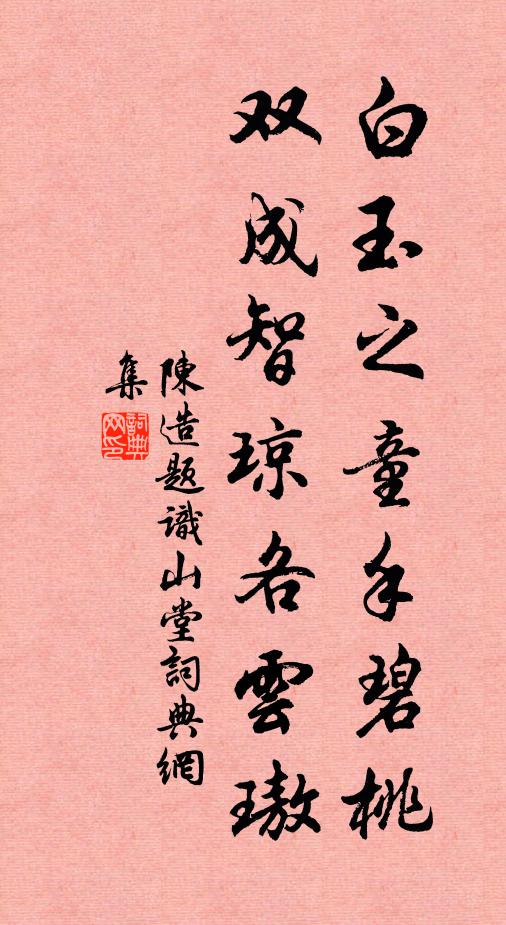 白玉之童手碧桃
双成智琼各雲璈
陳造題識山堂詞典網
集
詞典網印